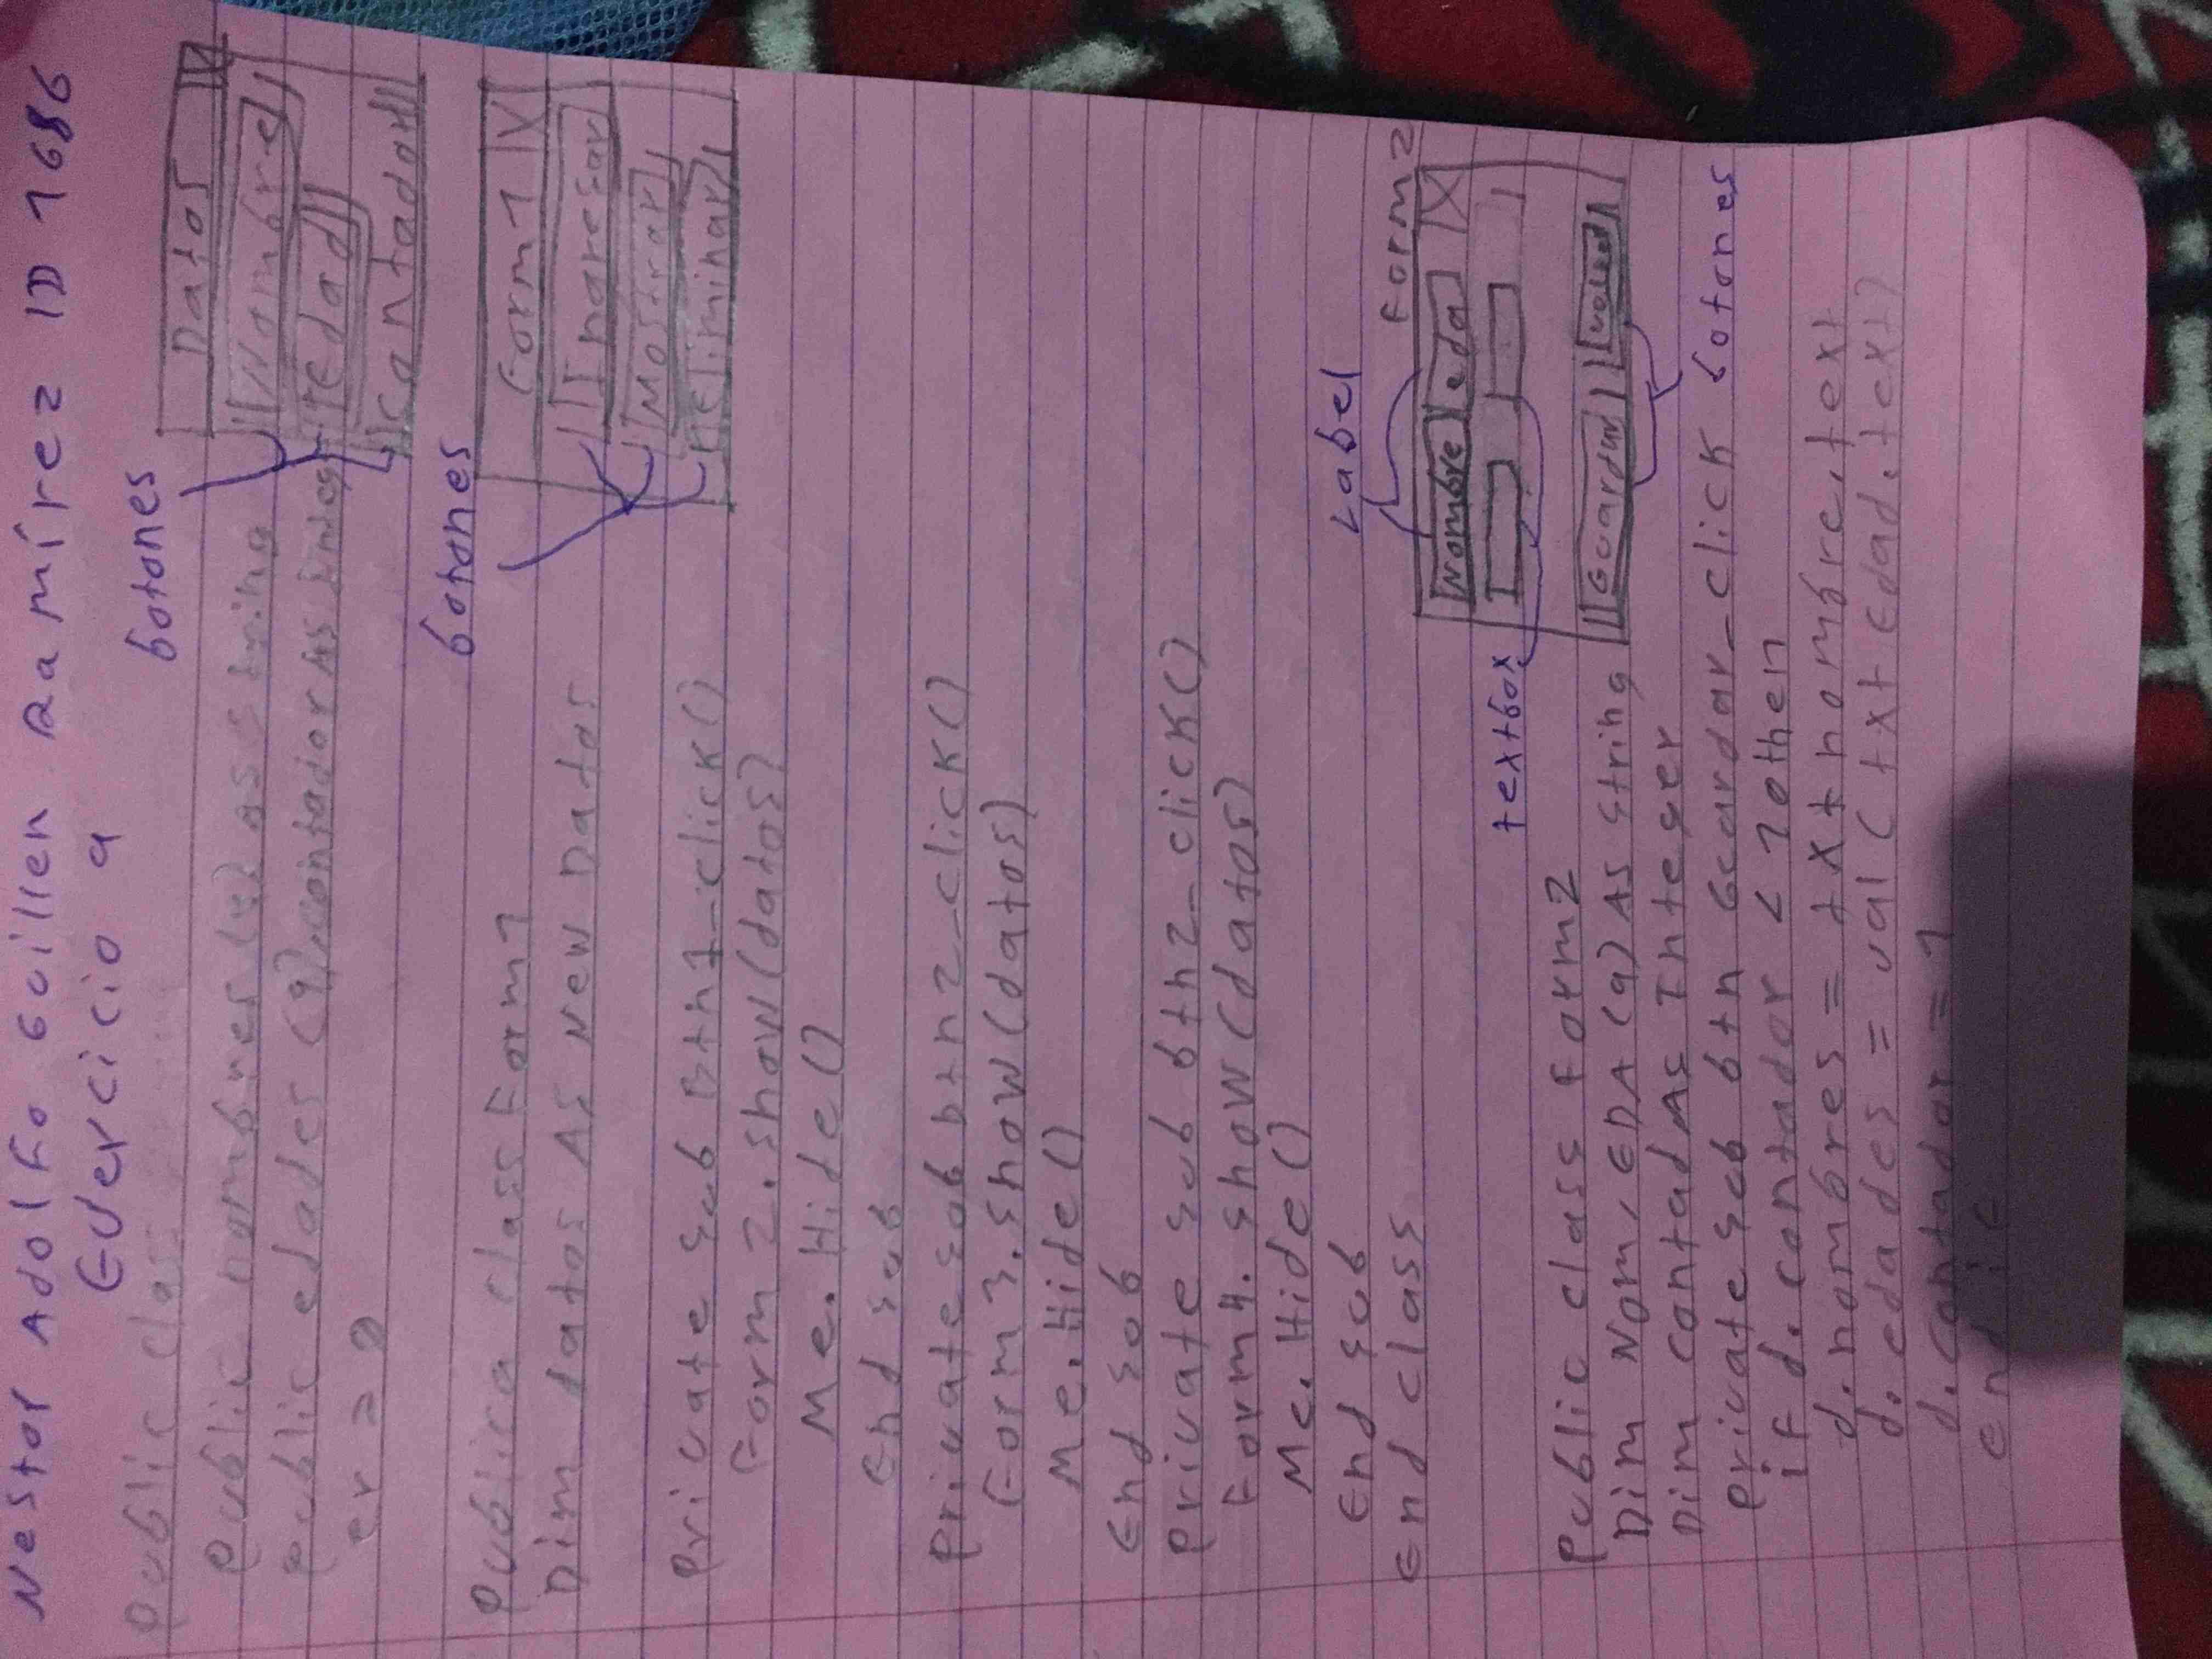 Nestor Adolfo Guillen Ramírez ID 1686
Ejercicio 9
botones
Datos
Nombre
edad
contador
Public clas
Public nombres(9) as string
Public edades (9), contador As integ
er = 0
botones
Form1 X
Ingresar
Mostrar
eliminar
Publica class Form1
Dim datos As New Datos
Private sub Btn1_click()
Form 2.show(datos)
Me.Hide()
End sub
Private sub btn2_click()
Form3.show(datos)
Me.Hide()
End sub
Private sub btn2_click()
Form4.show(datos)
Me.Hide()
End sub
End class
Label
Form2
Nombre eda X
textbox
Guardar
botones
Public class form2
Dim Nom, EDA (9) As string
Dim contad As Integer
Private sub btn Guardar_click
if d.contador < 10then
d.nombres = txtnombre.text
d.edades = val(txtEdad.text)
d.contador = 1
end if